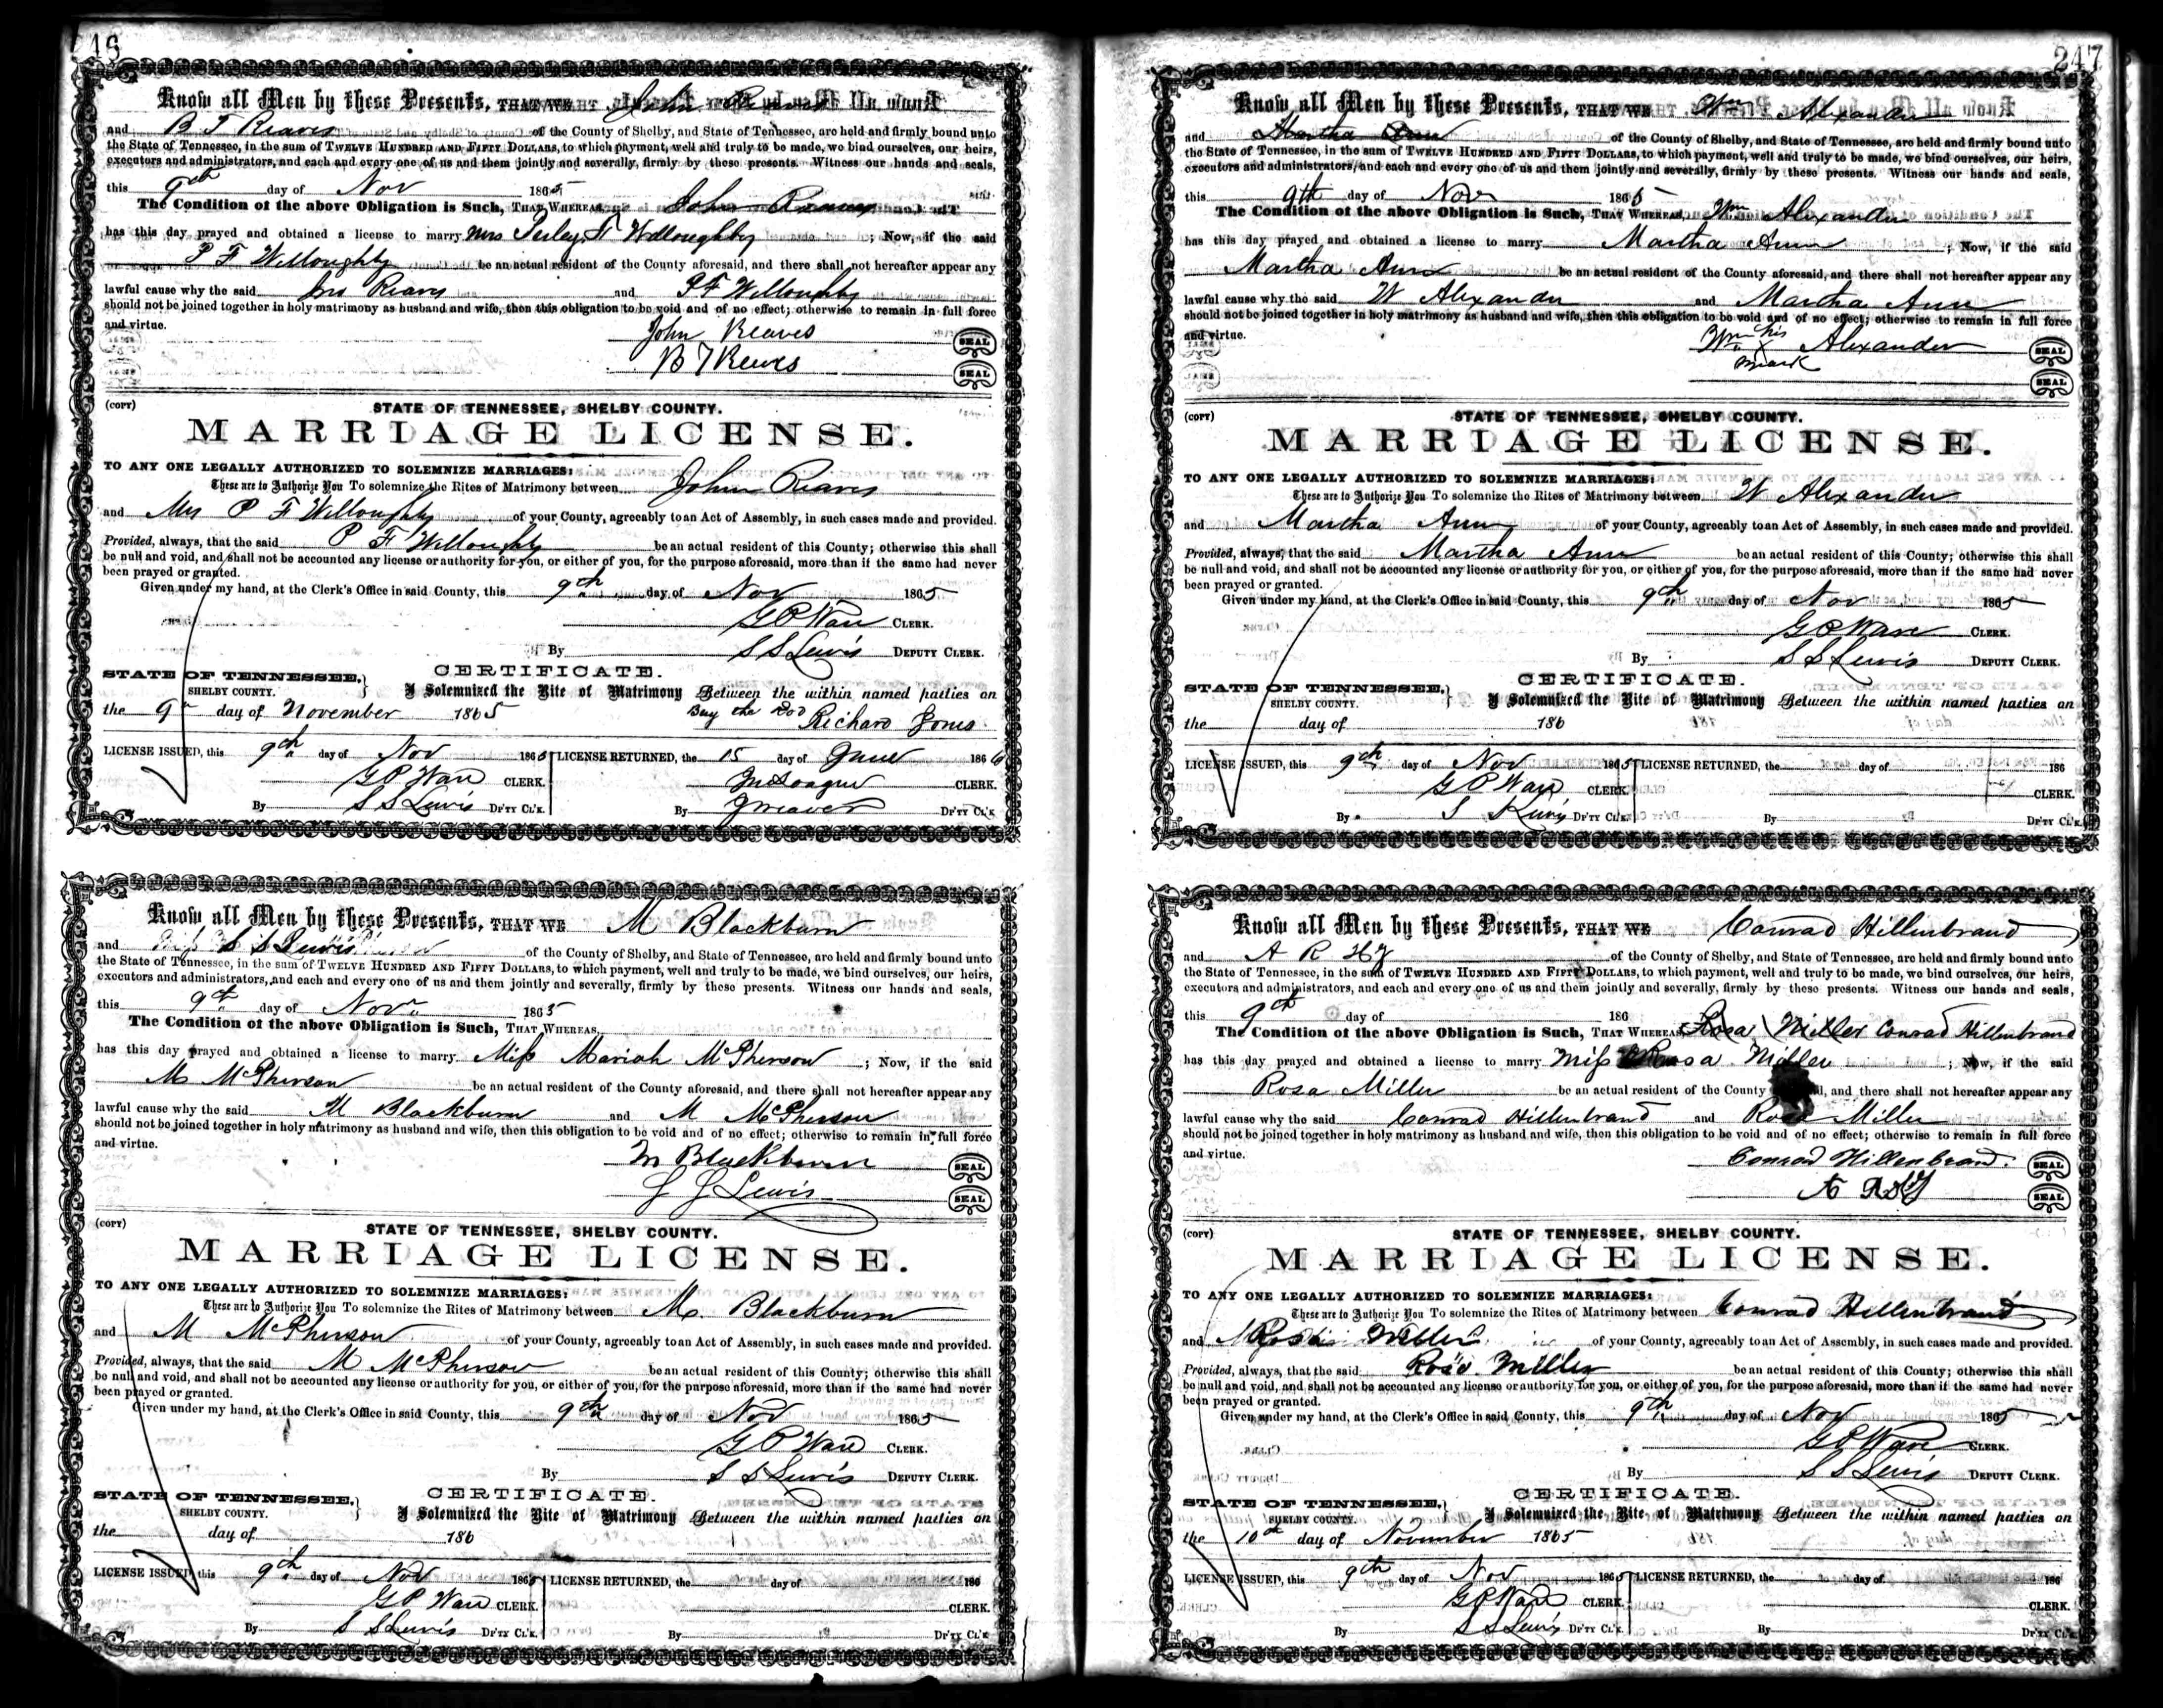 46
Know all Men by these Presents, THAT WE John Reaves
and B T Reaves of the County of Shelby, and State of Tennessee, are held and firmly bound unto
the State of Tennessee, in the sum of TWELVE HUNDRED AND FIFTY DOLLARS, to which payment, well and truly to be made, we bind ourselves, our heirs,
executors and administrators, and each and every one of us and them jointly and severally, firmly by these presents. Witness our hands and seals,
this 9th day of Nov 1865
The Condition of the above Obligation is Such, THAT WHEREAS, John Reaves
has this day prayed and obtained a license to marry Mrs F Willoughby ; Now, if the said
P F Willoughby be an actual resident of the County aforesaid, and there shall not hereafter appear any
lawful cause why the said Jno Reaves and P F Willoughby
should not be joined together in holy matrimony as husband and wife, then this obligation to be void and of no effect; otherwise to remain in full force
and virtue.
John Reaves SEAL
B T Reaves SEAL
(COPY) STATE OF TENNESSEE, SHELBY COUNTY.
MARRIAGE LICENSE.
TO ANY ONE LEGALLY AUTHORIZED TO SOLEMNIZE MARRIAGES:
These are to Authorize You To solemnize the Rites of Matrimony between John Reaves
and Mrs P F Willoughby of your County, agreeably to an Act of Assembly, in such cases made and provided.
Provided, always, that the said P F Willoughby be an actual resident of this County; otherwise this shall
be null and void, and shall not be accounted any license or authority for you, or either of you, for the purpose aforesaid, more than if the same had never
been prayed or granted.
Given under my hand, at the Clerk's Office in said County, this 9th day of Nov 1865
G P Ware CLERK.
By S S Lewis DEPUTY CLERK.
STATE OF TENNESSEE, } CERTIFICATE.
SHELBY COUNTY. I Solemnized the Rite of Matrimony Between the within named parties on
the 9th day of November 1865 Richard Jones
LICENSE ISSUED, this 9th day of Nov 1865 LICENSE RETURNED, the 15 day of June 1866
G P Ware CLERK. CLERK.
By S S Lewis DP'TY CL'K. By J Weaver DP'TY CL'K
Know all Men by these Presents, THAT WE M Blackburn
and S S Lewis of the County of Shelby, and State of Tennessee, are held and firmly bound unto
the State of Tennessee, in the sum of TWELVE HUNDRED AND FIFTY DOLLARS, to which payment, well and truly to be made, we bind ourselves, our heirs,
executors and administrators, and each and every one of us and them jointly and severally, firmly by these presents. Witness our hands and seals,
this 9th day of Nov 1865
The Condition of the above Obligation is Such, THAT WHEREAS,
has this day prayed and obtained a license to marry Miss Mariah McPherson ; Now, if the said
M McPherson be an actual resident of the County aforesaid, and there shall not hereafter appear any
lawful cause why the said M Blackburn and M McPherson
should not be joined together in holy matrimony as husband and wife, then this obligation to be void and of no effect; otherwise to remain in full force
and virtue.
M Blackburn SEAL
S S Lewis SEAL
(COPY) STATE OF TENNESSEE, SHELBY COUNTY.
MARRIAGE LICENSE.
TO ANY ONE LEGALLY AUTHORIZED TO SOLEMNIZE MARRIAGES:
These are to Authorize You To solemnize the Rites of Matrimony between M. Blackburn
and M McPherson of your County, agreeably to an Act of Assembly, in such cases made and provided.
Provided, always, that the said M McPherson be an actual resident of this County; otherwise this shall
be null and void, and shall not be accounted any license or authority for you, or either of you, for the purpose aforesaid, more than if the same had never
been prayed or granted.
Given under my hand, at the Clerk's Office in said County, this 9th day of Nov 1865
G P Ware CLERK.
By S S Lewis DEPUTY CLERK.
STATE OF TENNESSEE, } CERTIFICATE.
SHELBY COUNTY. I Solemnized the Rite of Matrimony Between the within named parties on
the day of 186
LICENSE ISSUED, this 9th day of Nov 1865 LICENSE RETURNED, the day of 186
G P Ware CLERK. CLERK.
By S S Lewis DP'TY CL'K. By DP'TY CL'K
247
Know all Men by these Presents, THAT WE Wm Alexander
and Martha Ann of the County of Shelby, and State of Tennessee, are held and firmly bound unto
the State of Tennessee, in the sum of TWELVE HUNDRED AND FIFTY DOLLARS, to which payment, well and truly to be made, we bind ourselves, our heirs,
executors and administrators, and each and every one of us and them jointly and severally, firmly by these presents. Witness our hands and seals,
this 9th day of Nov 1865
The Condition of the above Obligation is Such, THAT WHEREAS, Wm Alexander
has this day prayed and obtained a license to marry Martha Ann ; Now, if the said
Martha Ann be an actual resident of the County aforesaid, and there shall not hereafter appear any
lawful cause why the said W Alexander and Martha Ann
should not be joined together in holy matrimony as husband and wife, then this obligation to be void and of no effect; otherwise to remain in full force
and virtue.
Wm his X mark Alexander SEAL
SEAL
(COPY) STATE OF TENNESSEE, SHELBY COUNTY.
MARRIAGE LICENSE.
TO ANY ONE LEGALLY AUTHORIZED TO SOLEMNIZE MARRIAGES:
These are to Authorize You To solemnize the Rites of Matrimony between W Alexander
and Martha Ann of your County, agreeably to an Act of Assembly, in such cases made and provided.
Provided, always, that the said Martha Ann be an actual resident of this County; otherwise this shall
be null and void, and shall not be accounted any license or authority for you, or either of you, for the purpose aforesaid, more than if the same had never
been prayed or granted.
Given under my hand, at the Clerk's Office in said County, this 9th day of Nov 1865
G P Ware CLERK.
By S S Lewis DEPUTY CLERK.
STATE OF TENNESSEE, } CERTIFICATE.
SHELBY COUNTY. I Solemnized the Rite of Matrimony Between the within named parties on
the day of 186
LICENSE ISSUED, this 9th day of Nov 1865 LICENSE RETURNED, the day of 186
G P Ware CLERK. CLERK.
By S Lewis DP'TY CL'K. By DP'TY CL'K
Know all Men by these Presents, THAT WE Conrad Hillenbrand
and A R of the County of Shelby, and State of Tennessee, are held and firmly bound unto
the State of Tennessee, in the sum of TWELVE HUNDRED AND FIFTY DOLLARS, to which payment, well and truly to be made, we bind ourselves, our heirs,
executors and administrators, and each and every one of us and them jointly and severally, firmly by these presents. Witness our hands and seals,
this 9th day of 186
The Condition of the above Obligation is Such, THAT WHEREAS, Rosa Miller Conrad Hillenbrand
has this day prayed and obtained a license to marry Miss Rosa Miller ; Now, if the said
Rosa Miller be an actual resident of the County and there shall not hereafter appear any
lawful cause why the said Conrad Hillenbrand and Rosa Miller
should not be joined together in holy matrimony as husband and wife, then this obligation to be void and of no effect; otherwise to remain in full force
and virtue.
Conrad Hillenbrand. SEAL
SEAL
(COPY) STATE OF TENNESSEE, SHELBY COUNTY.
MARRIAGE LICENSE.
TO ANY ONE LEGALLY AUTHORIZED TO SOLEMNIZE MARRIAGES:
These are to Authorize You To solemnize the Rites of Matrimony between Conrad Hillenbrand
and Rosa Miller of your County, agreeably to an Act of Assembly, in such cases made and provided.
Provided, always, that the said Rosa Miller be an actual resident of this County; otherwise this shall
be null and void, and shall not be accounted any license or authority for you, or either of you, for the purpose aforesaid, more than if the same had never
been prayed or granted.
Given under my hand, at the Clerk's Office in said County, this 9th day of Nov 1865
G P Ware CLERK.
By S S Lewis DEPUTY CLERK.
STATE OF TENNESSEE, } CERTIFICATE.
SHELBY COUNTY. I Solemnized the Rite of Matrimony Between the within named parties on
the 10th day of November 1865
LICENSE ISSUED, this 9th day of Nov 1865 LICENSE RETURNED, the day of 186
G P Ware CLERK. CLERK.
By S S Lewis DP'TY CL'K. By DP'TY CL'K